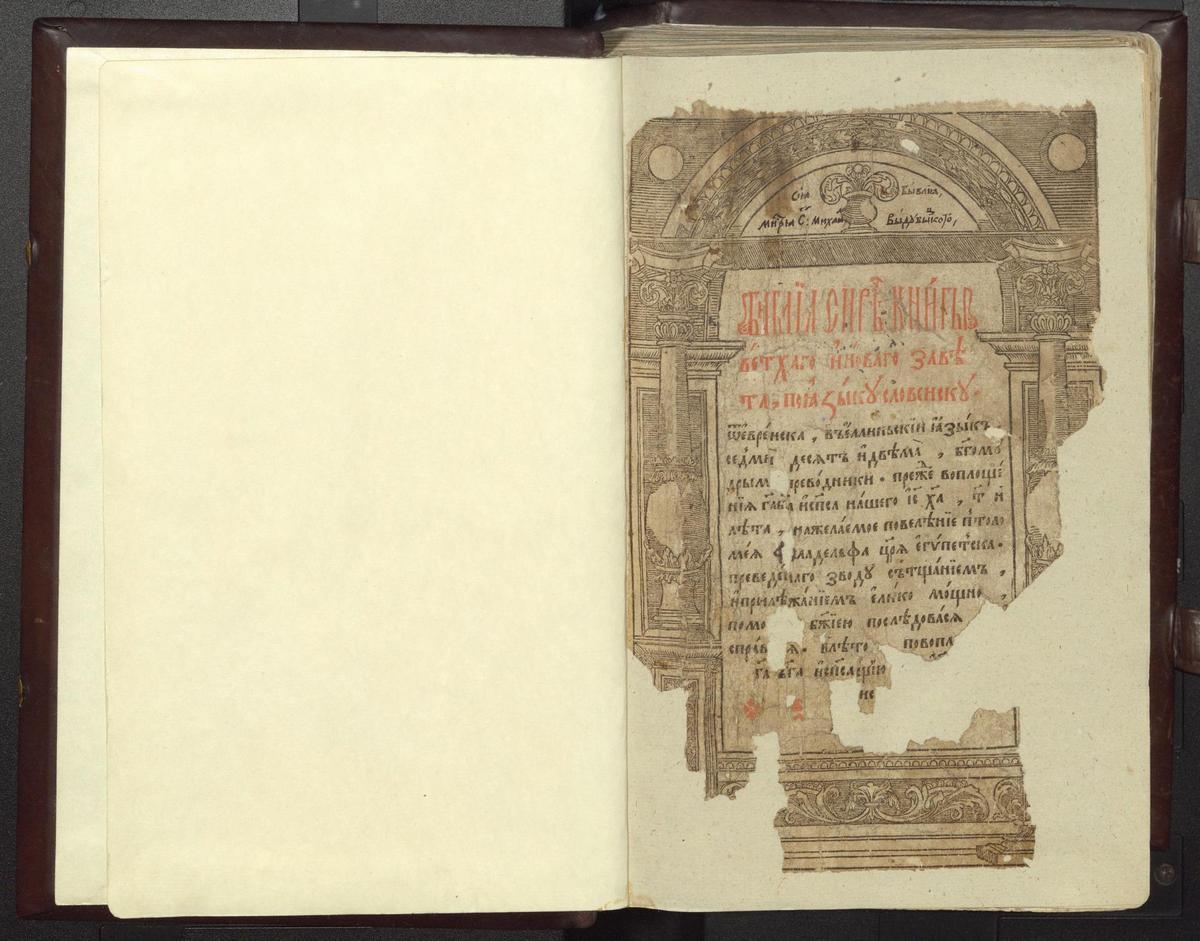 Сїѧ Быблиа,
Мнтрѧ С: Михаи Выдꙋбыцкого,
Библїа сирѣч книгы
ветхаго и новаго завѣ
та, поꙗзыкꙋ словенскꙋ.
ѿ еврейска, въеллиньскїи ꙗзыкъ
седмиⷨ десѧтъ и двѣма, бг҃омꙋ
дрым преводники. преⷤе воплоще
нїѧ га҃ ба҃ и сп҃са нашего іс҃ ха҃, т҃ и
лѣта, нажелаемое повелѣнїе птодо
меа филаделфа цр҃ѧ египетска.
преведенаго зводꙋ сътщанїемъ,
и прилѣжанїемъ елико мощно,
помо бж҃їею послѣдовасѧ
вълѣто повопл
га҃ ба҃